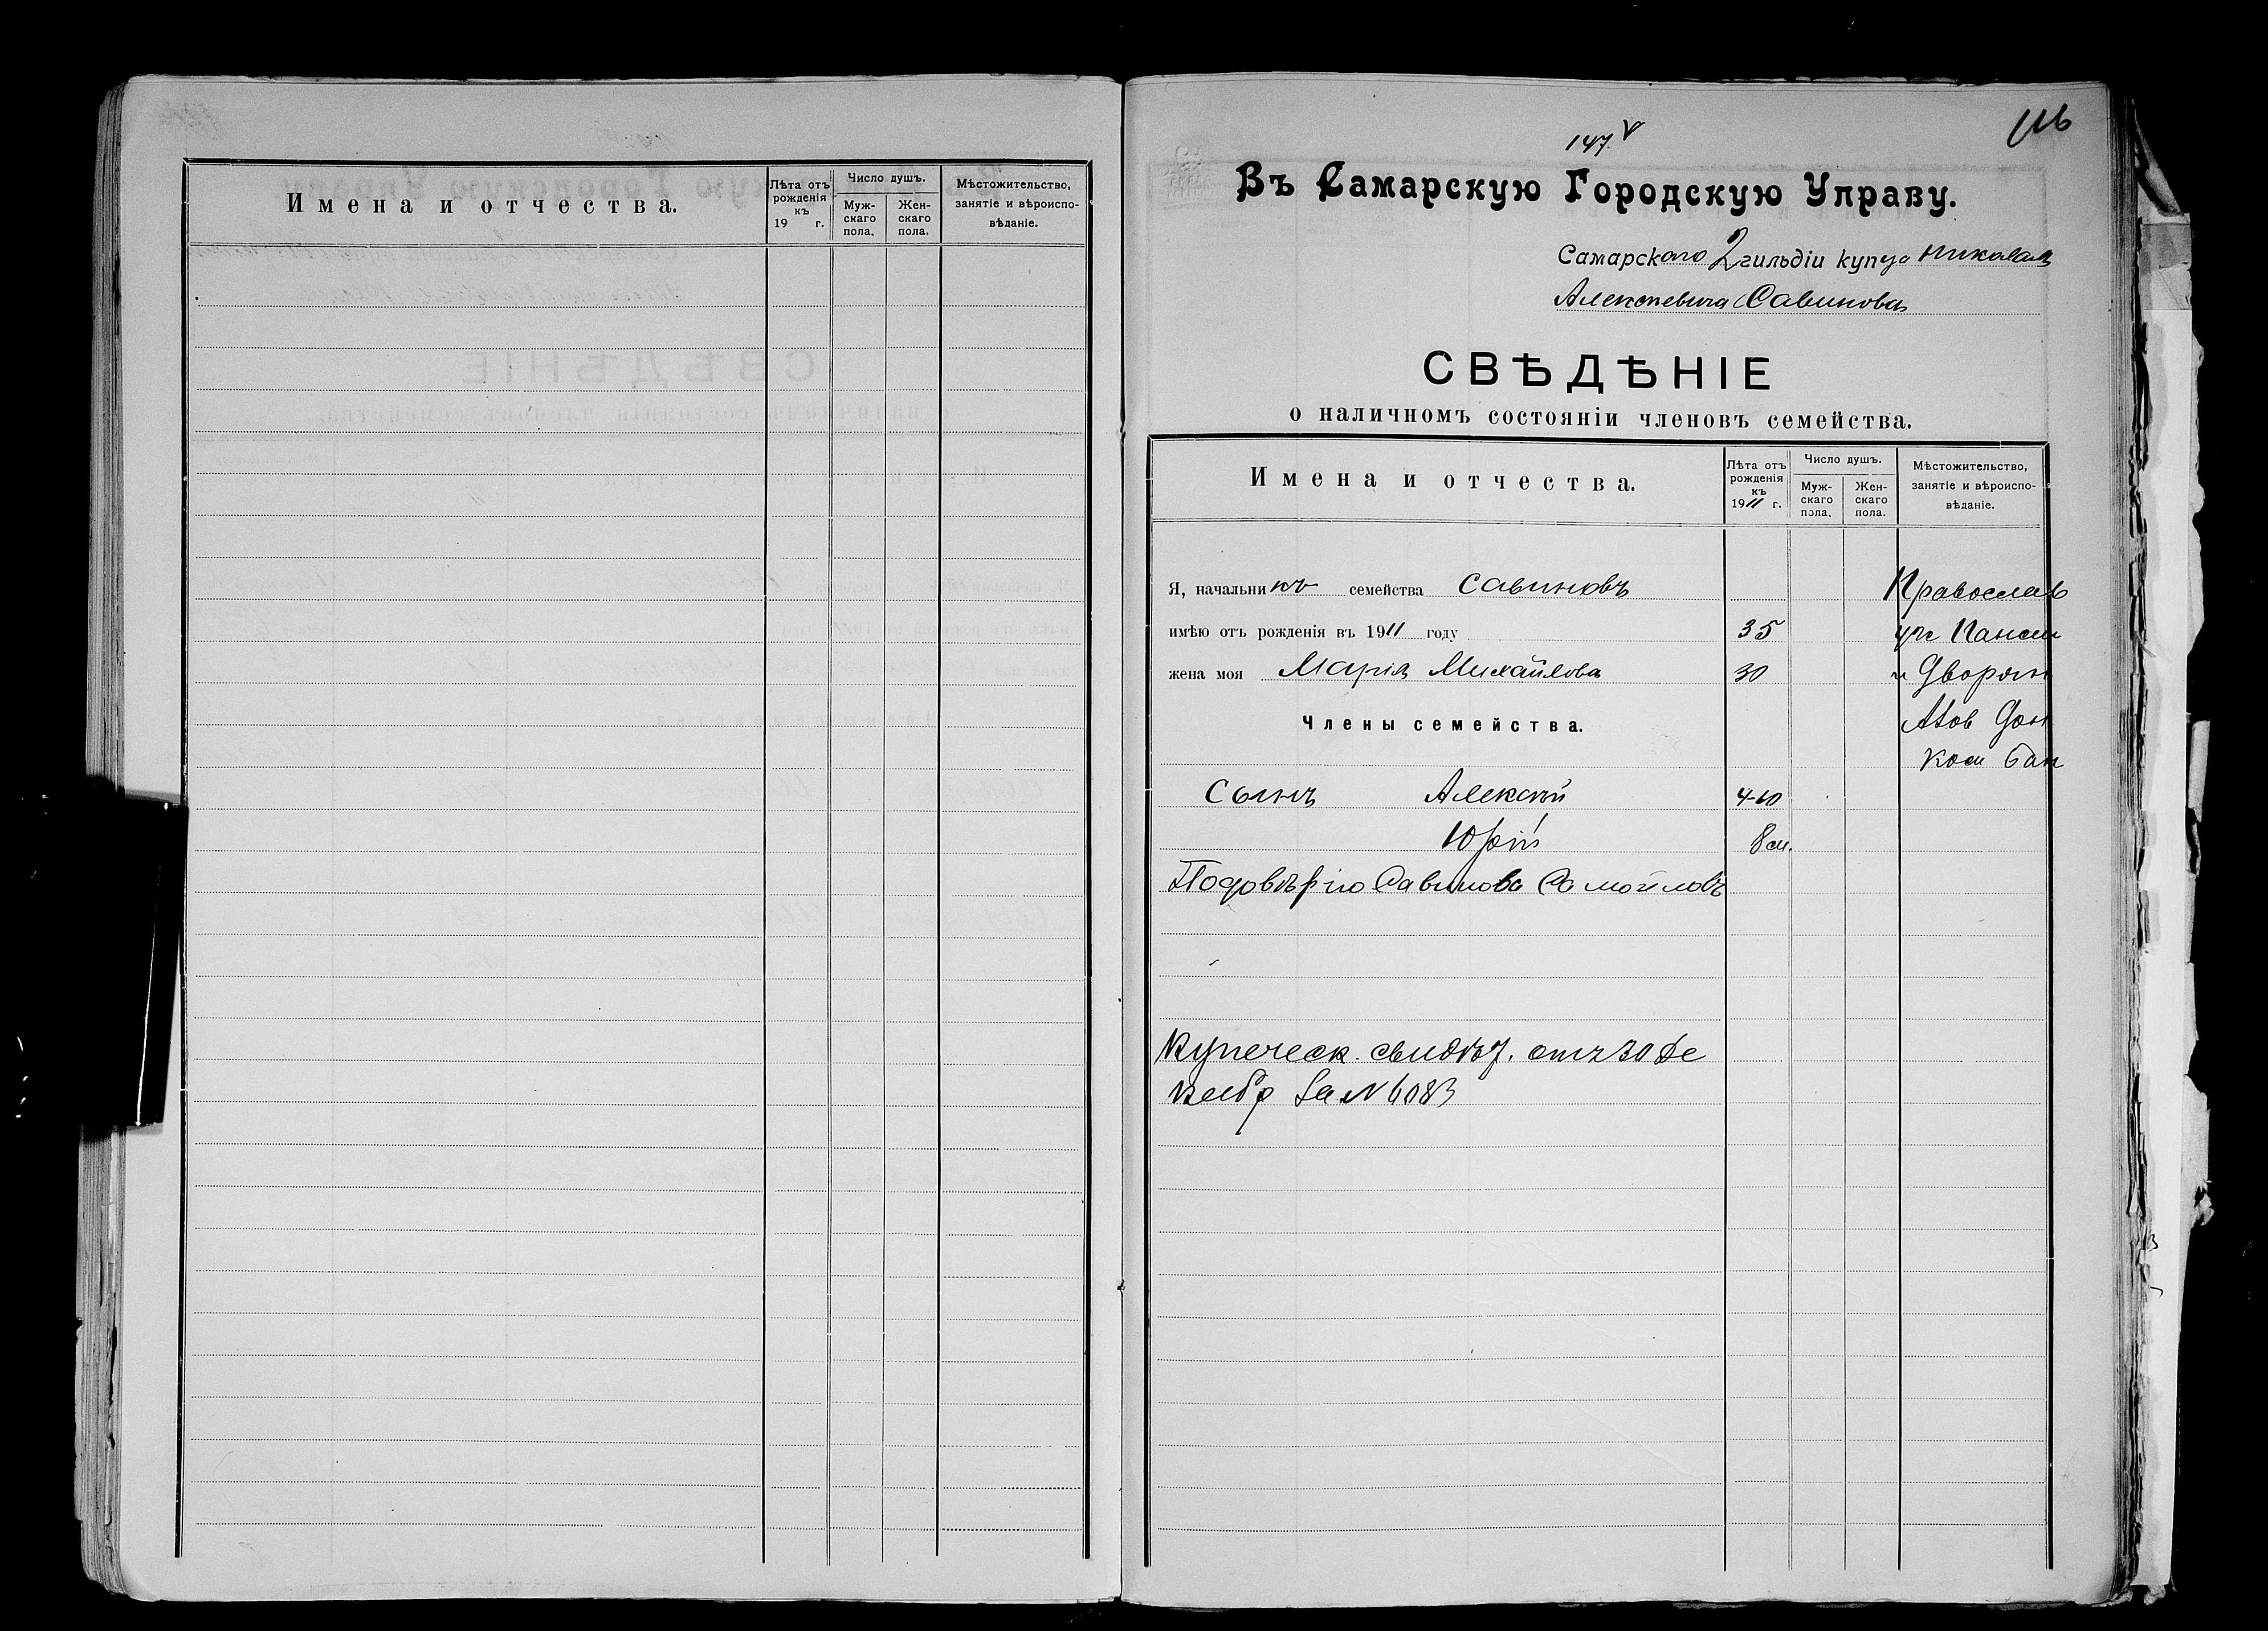 Имена и отчества.
Лѣта отъ рожденія къ 19 г.
Число душъ.
Мужскаго пола.
Женскаго пола.
Мѣстожительство, занятіе и вѣроисповѣданіе.
147
116
Въ Самарскую Городскую Управу.
Самарскаго 2 гильдіи купца Николая
Алексѣевича Савинова
СВѢДѢНІЕ
о наличномъ состояніи членовъ семейства.
Имена и отчества.
Лѣта отъ рожденія къ 1911 г.
Число душъ.
Мужскаго пола.
Женскаго пола.
Мѣстожительство, занятіе и вѣроисповѣданіе.
Я, начальникъ семейства Савиновъ Православ
имѣю отъ рожденія въ 1911 году 35 уг Панск
жена моя Марія Михайлова 30 и Дворян
Члены семейства. Азов Дон
Ком Бан
Сынъ Алексѣй 4-10
Юрій 8 м.
По довѣрію Савинова Самойловъ
Купеческ. свидѣт. отъ 30 Де
кабр за № 6083